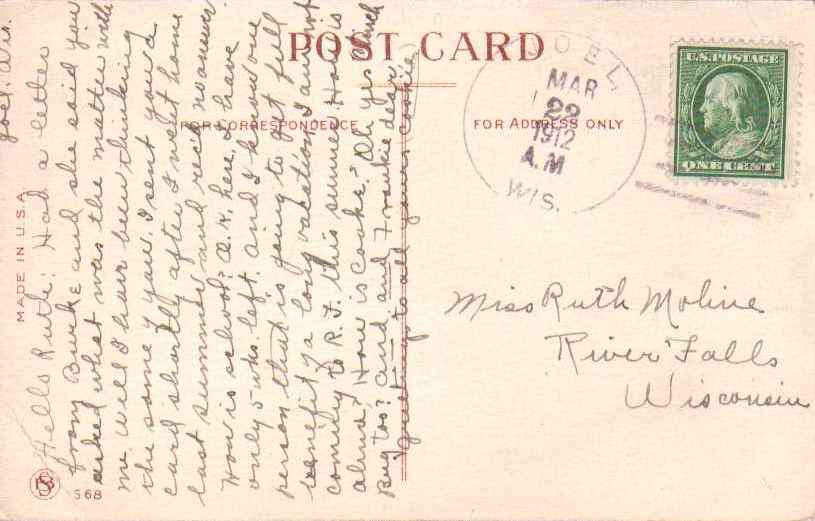 POST CARD
FOR CORRESPONDENCE
FOR ADDRESS ONLY
MADE IN U.S.A.
S68
JOEL,
MAR
22
1912
A.M
WIS.
U.S. POSTAGE
ONE CENT
Miss Ruth Moline
River Falls
Wisconsin
Joel, Wis.
Hello Ruth: Had a letter
from Burke and she said you
asked what was the matter with
me. Well I have been thinking
the same of you. I sent you a
card shortly after I went home
last summer and rec'd no answer.
How is school? O.K. here. I have
only 5 wks. left. and I know one
person that is going to get full
benefit of a long vacation. I am not
coming to R.F. this summer. How is
Alma? How is Cooke? Oh yes
Bug too? and and Frankie dear
Greetings to all yours